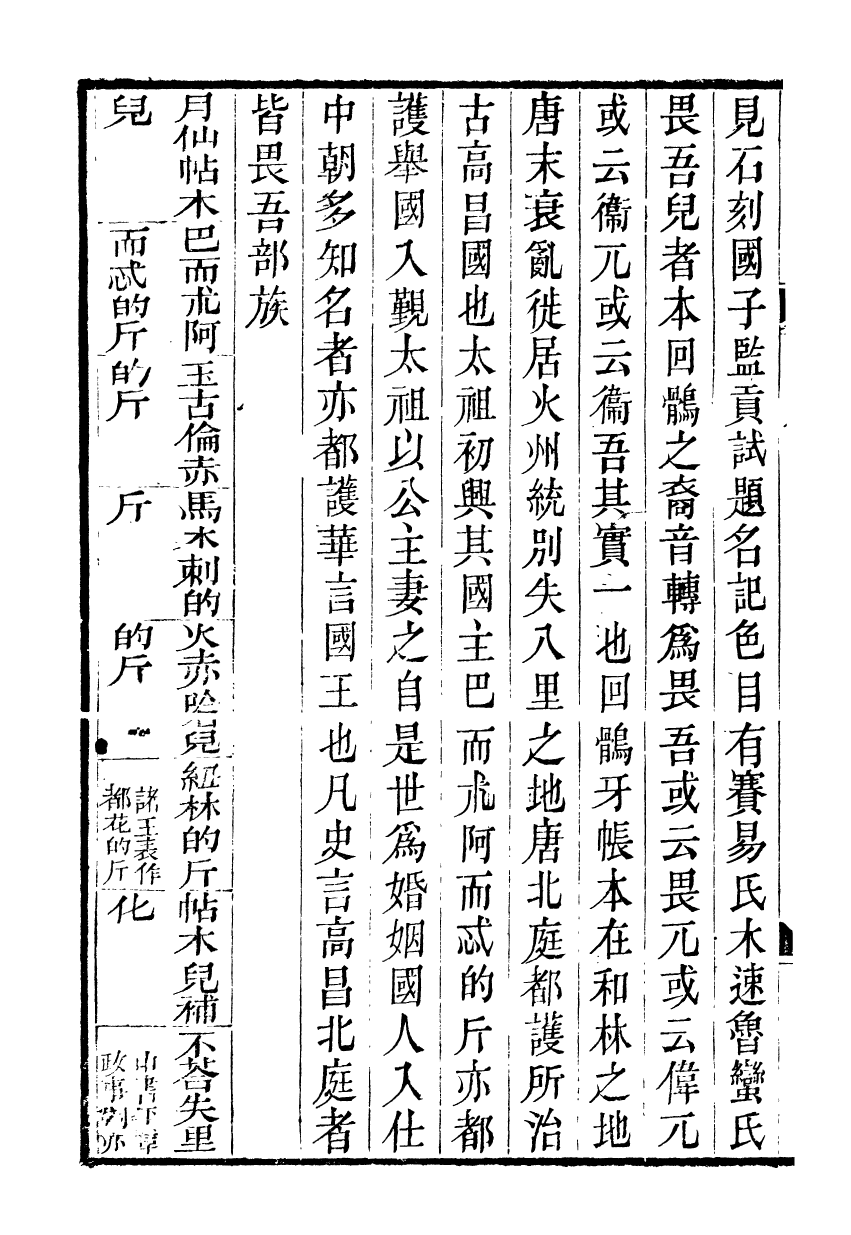 見石刻國子監貢試題名記色目有賽易氏木速魯蠻氏
畏吾兒者本回鶻之裔音轉爲畏吾或云畏兀或云偉兀
或云衞兀或云衞吾其實一也回鶻牙帳本在和林之地
唐末衰亂徙居火州統別失八里之地唐北庭都護所治
古高昌國也太祖初興其國主巴而朮阿而忒的斤亦都
護舉國入覲太祖以公主妻之自是世爲婚姻國人入仕
中朝多知名者亦都護華言國王也凡史言高昌北庭者
皆畏吾部族
月仙帖木
兒
巴而朮阿
而忒的斤的斤
玉古倫赤
斤
馬木剌的
火赤哈兒
的斤
紐林的斤
諸王表作
都花的斤
帖木兒補
化
不荅失里
中書平章
政事列亦